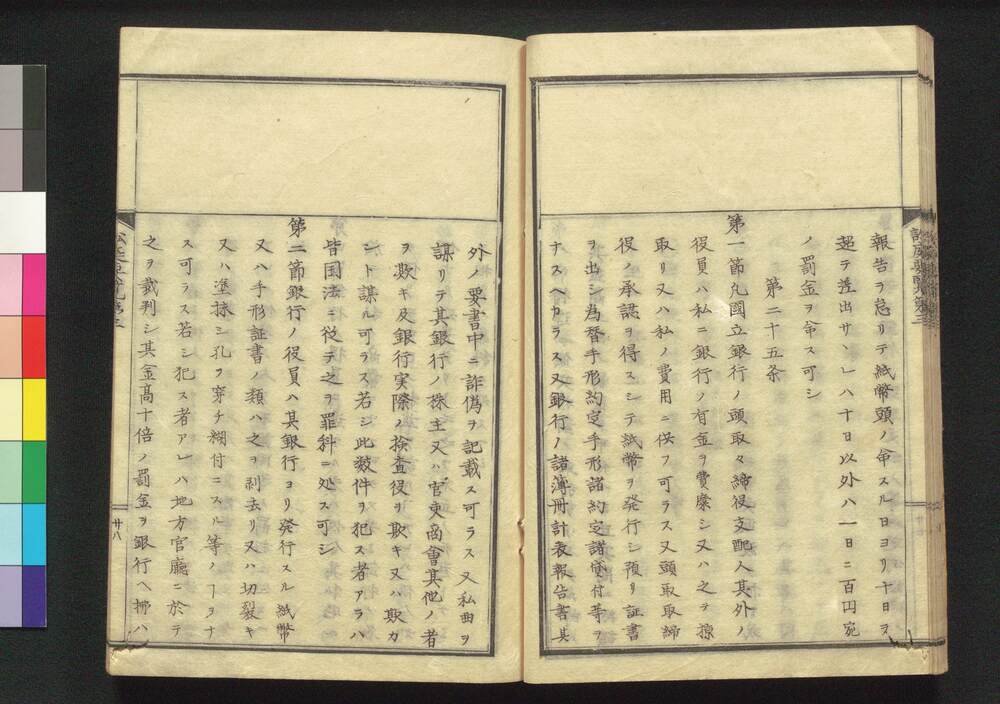 報告ヲ怠リテ紙幣頭ノ命スル日ヨリ十日ヲ
超テ差出サヽルハ十日以外ハ一日ニ百円宛
ノ罰金ヲ命ス可シ
第二十五条
第一節凡國立銀行ノ頭取々締役支配人其外ノ
役員ハ私ニ銀行ノ有金ヲ費糜シ又ハ之ヲ掠
取リ又ハ私ノ費用ニ供フ可ラス又頭取取締
役ノ承認ヲ得スシテ紙幣ヲ発行シ預リ証書
ヲ出シ為替手形約定手形諸約定諸貸付等ヲ
ナスヘカラス又銀行ノ諸簿冊計表報告書其
外ノ要書中ニ詐偽ヲ記載ス可ラス又私曲ヲ
謀リテ其銀行ノ株主又ハ官吏商會其他ノ者
ヲ欺キ及銀行実際ノ検査役ヲ欺キ又ハ欺カ
ント謀ル可ラス若シ此数件ヲ犯ス者アラハ
皆国法ニ従テ之ヲ罪科ニ処ス可シ
第二節銀行ノ役員ハ其銀行ヨリ発行スル紙幣
又ハ手形証書ノ類ハ之ヲ剥去リ又ハ切裂キ
又ハ塗抹シ孔ヲ穿チ糊付ニスル等ノヿヲナ
ス可ラス若シ犯ス者アレハ地方官廳ニ於テ
之ヲ裁判シ其金高十倍ノ罰金ヲ銀行ヘ拂ハ
廿八